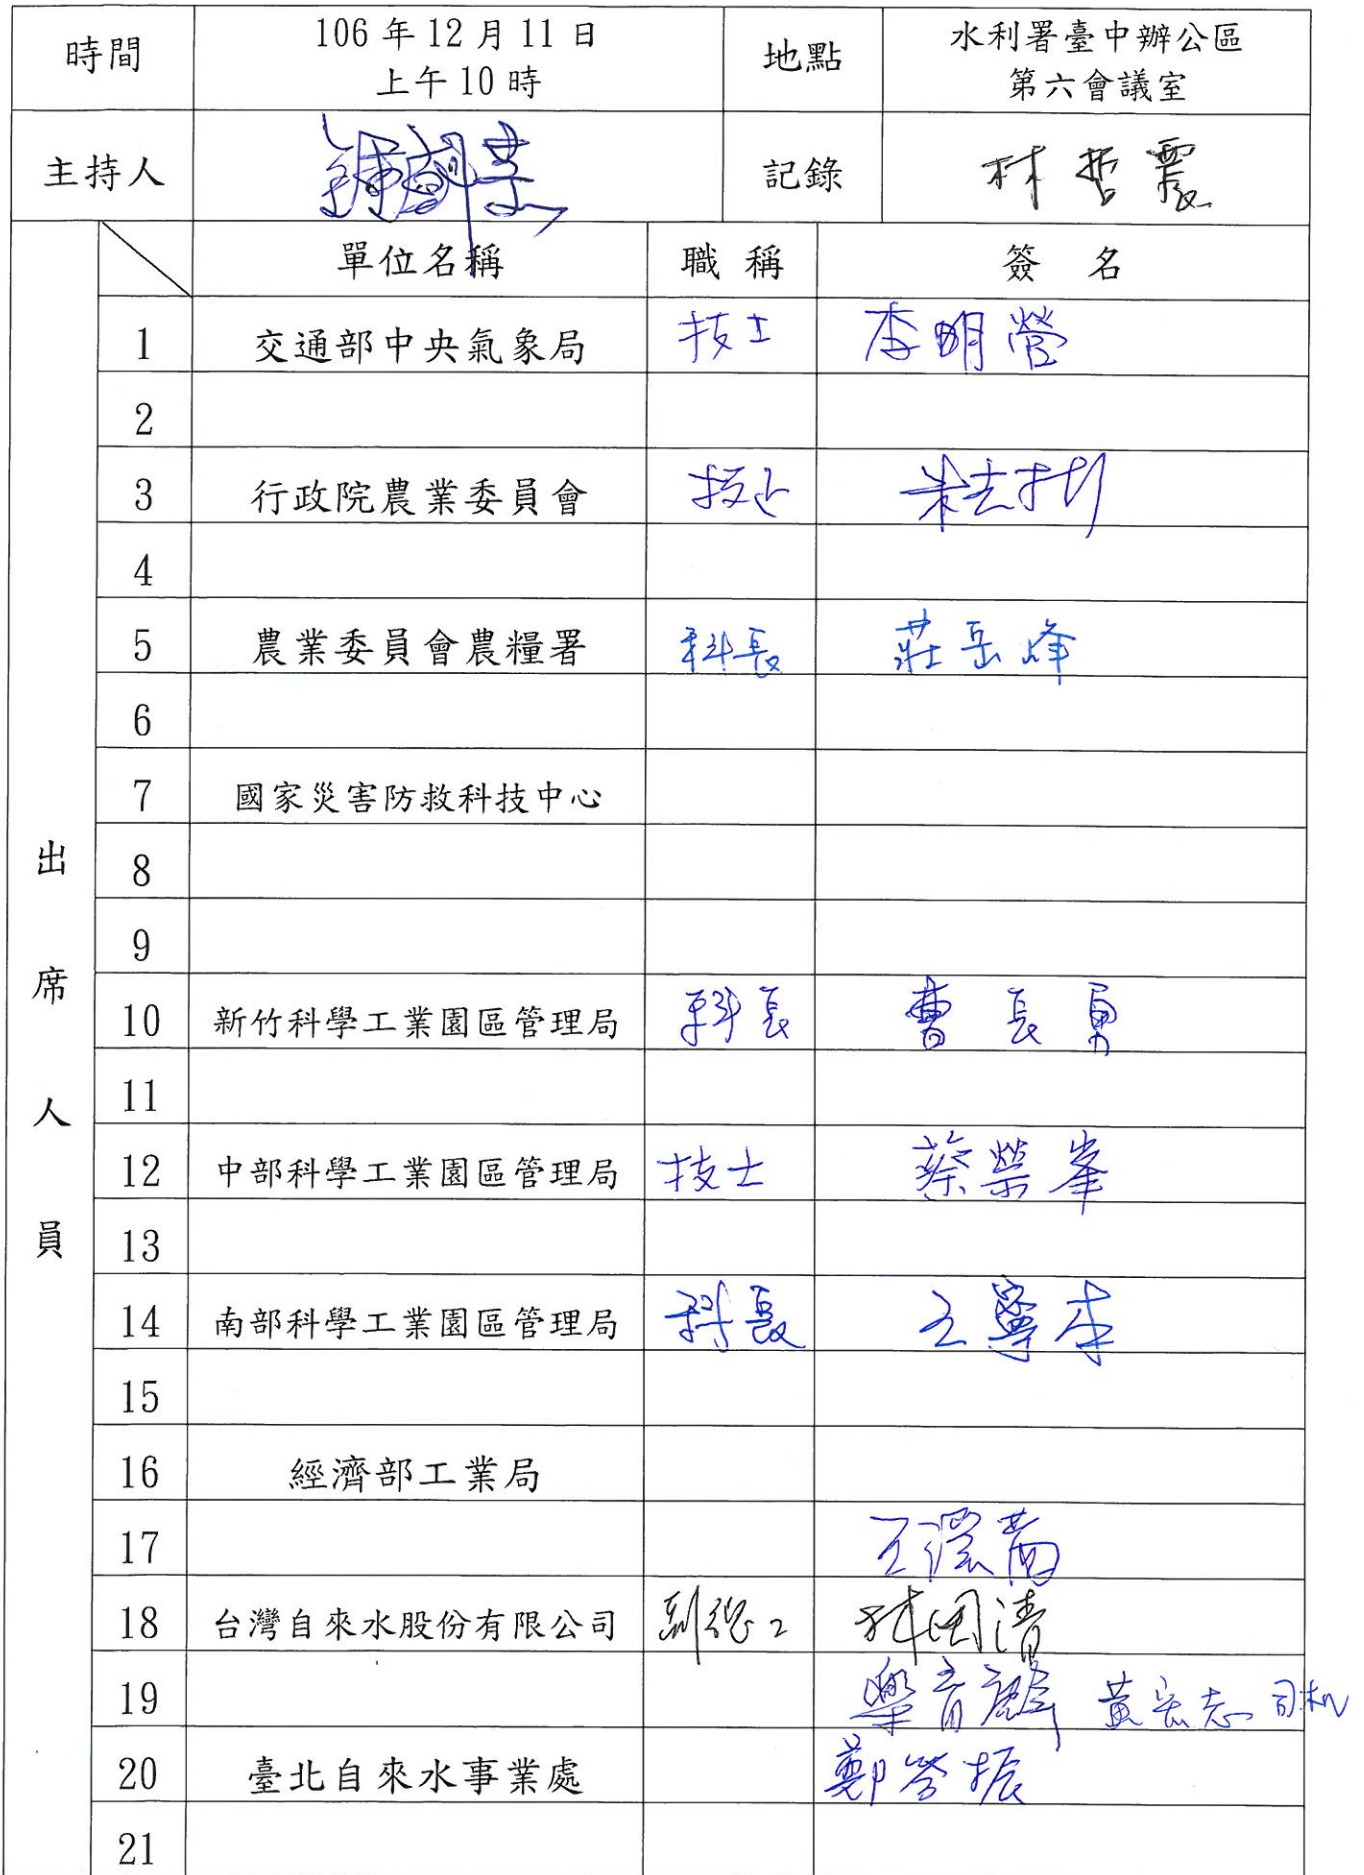 時間 106年12月11日 上午10時 地點 水利署臺中辦公區 第六會議室
主持人 記錄 林哲震
單位名稱 職稱 簽名
出席人員
1 交通部中央氣象局 技士 李明營
2
3 行政院農業委員會 技士
4
5 農業委員會農糧署 科長 莊岳峰
6
7 國家災害防救科技中心
8
9
10 新竹科學工業園區管理局 科長 曹長勇
11
12 中部科學工業園區管理局 技士 蔡榮峯
13
14 南部科學工業園區管理局 科長 王
15
16 經濟部工業局
17 王
18 台灣自來水股份有限公司 副總工 林國清
19 黃宏志 司机
20 臺北自來水事業處 鄭 振
21